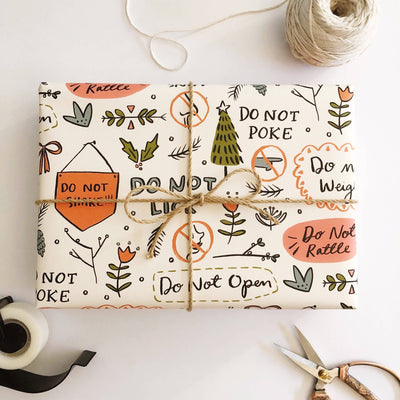 Do Not
Rattle
en
DO NOT
POKE
DO NOT
SHAKE!!!
DO NOT
LICK
Do n
Weig
Do Not
Rattle
DO NOT
POKE
Do Not Open